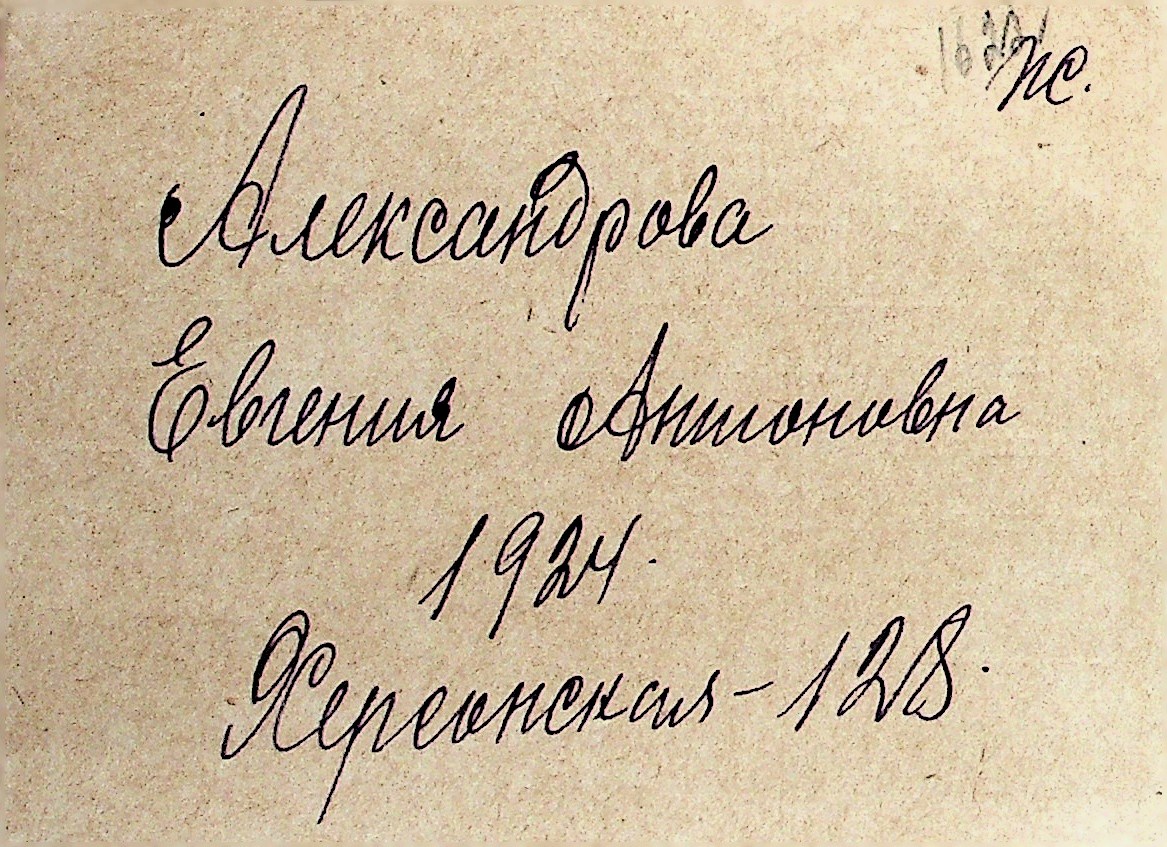 Александрова
Евгения Антоновна
1924.
Херсонская-128.